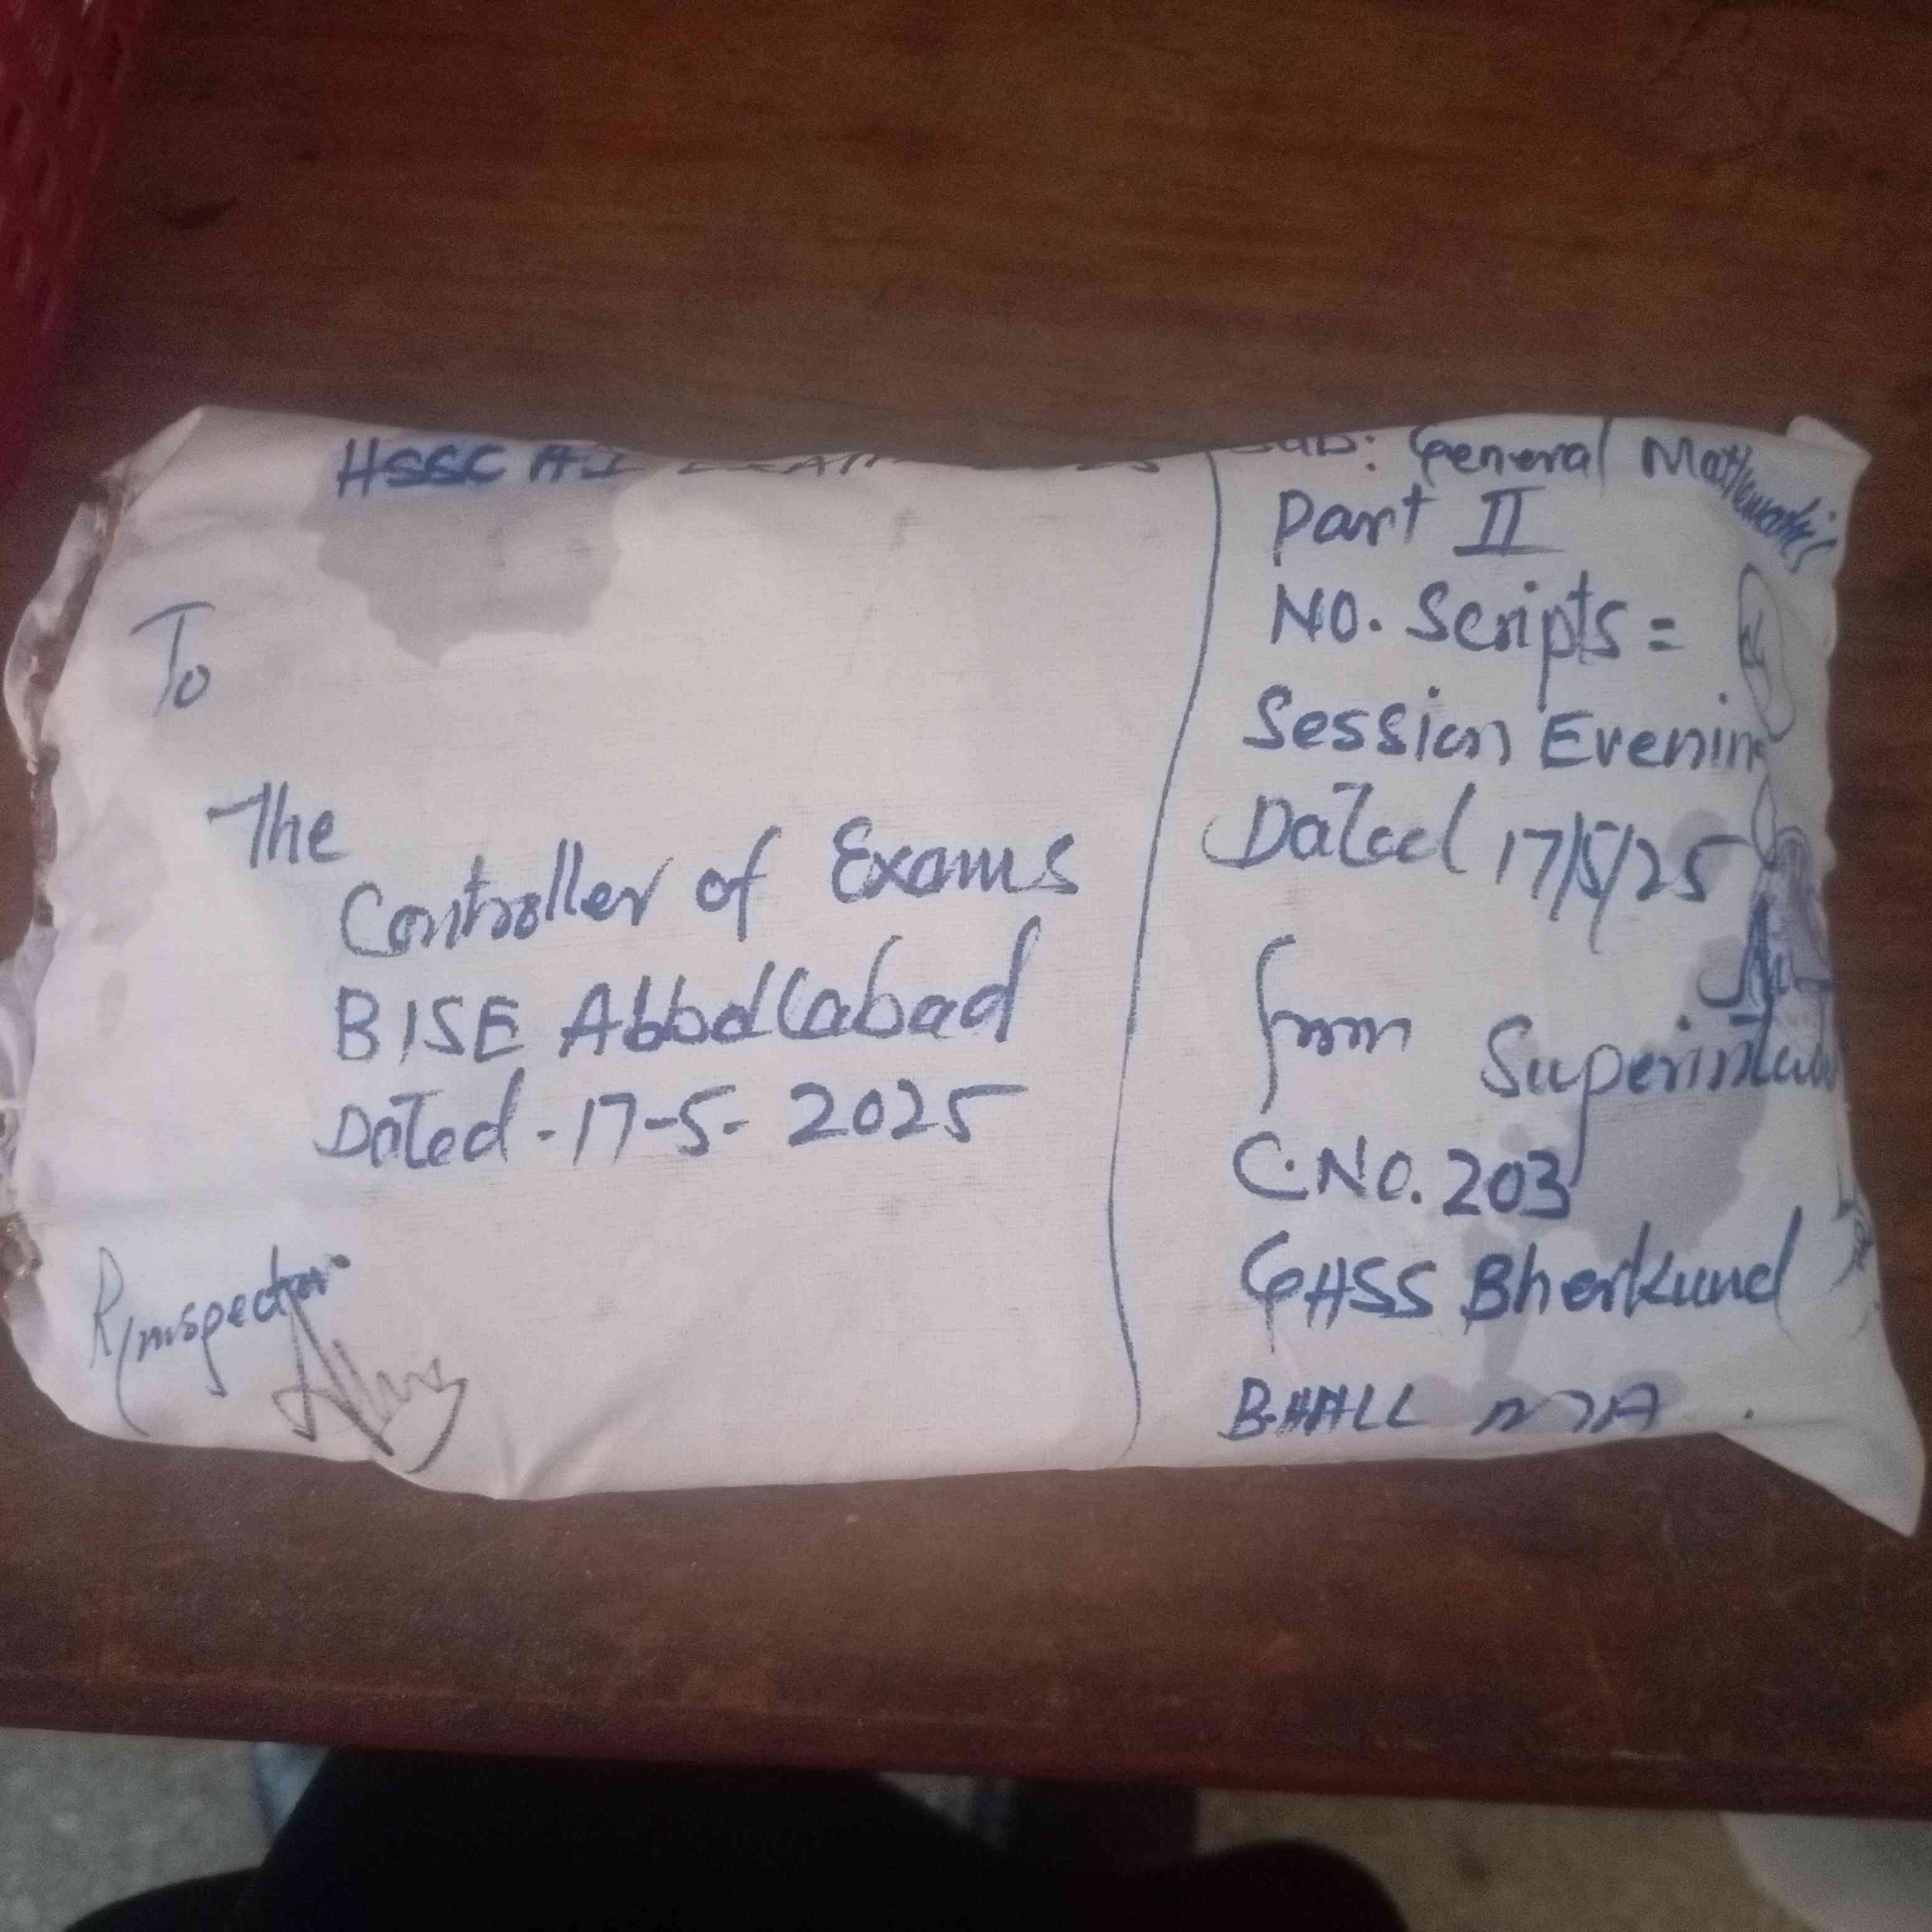 HSSC A-I
To
The
Controller of Exams
BISE Abbotabad
Dated - 17-5- 2025
R/inspector
Sub: General Mathematics
Part II
NO. Scripts =
Session Evening
Dated 17/5/25
from Superintendent
C.NO. 203
GHSS Bherkund
B.HALL